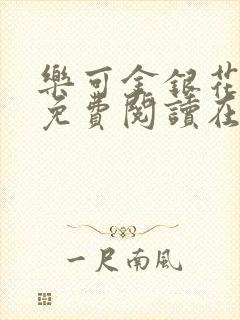 樂可金銀花
免費閱讀在
一尺南風